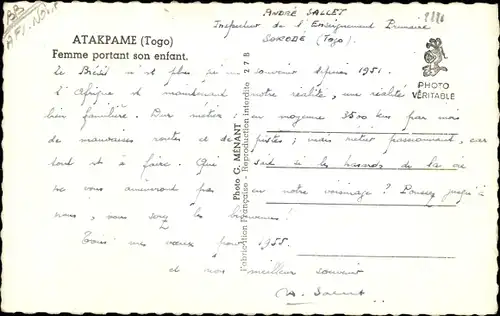 BB
AFI. NOI.
ANDRÉ SALLET
Inspecteur de l'Enseignement Primaire
SOKODÉ (Togo).
ATAKPAME (Togo)
Femme portant son enfant.
278
PHOTO
VÉRITABLE
Photo G. MÉNANT - Reproduction interdite
Fabrication Française
Le Brésil n'est plus qu'un souvenir depuis 1951.
L'Afrique est maintenant notre réalité, une réalité
bien familière. Dur métier : en moyenne 3500 kms par mois
de mauvaises routes et de pistes ; mais métier passionnant, car
tout est à faire. Qui sait si les hasards de la vie
ne vous amèneront pas en notre voisinage ? Poussez jusqu'à
nous, vous serez les bienvenus !
Tous mes vœux pour 1955.
et nos meilleurs souvenirs
A. Sallet